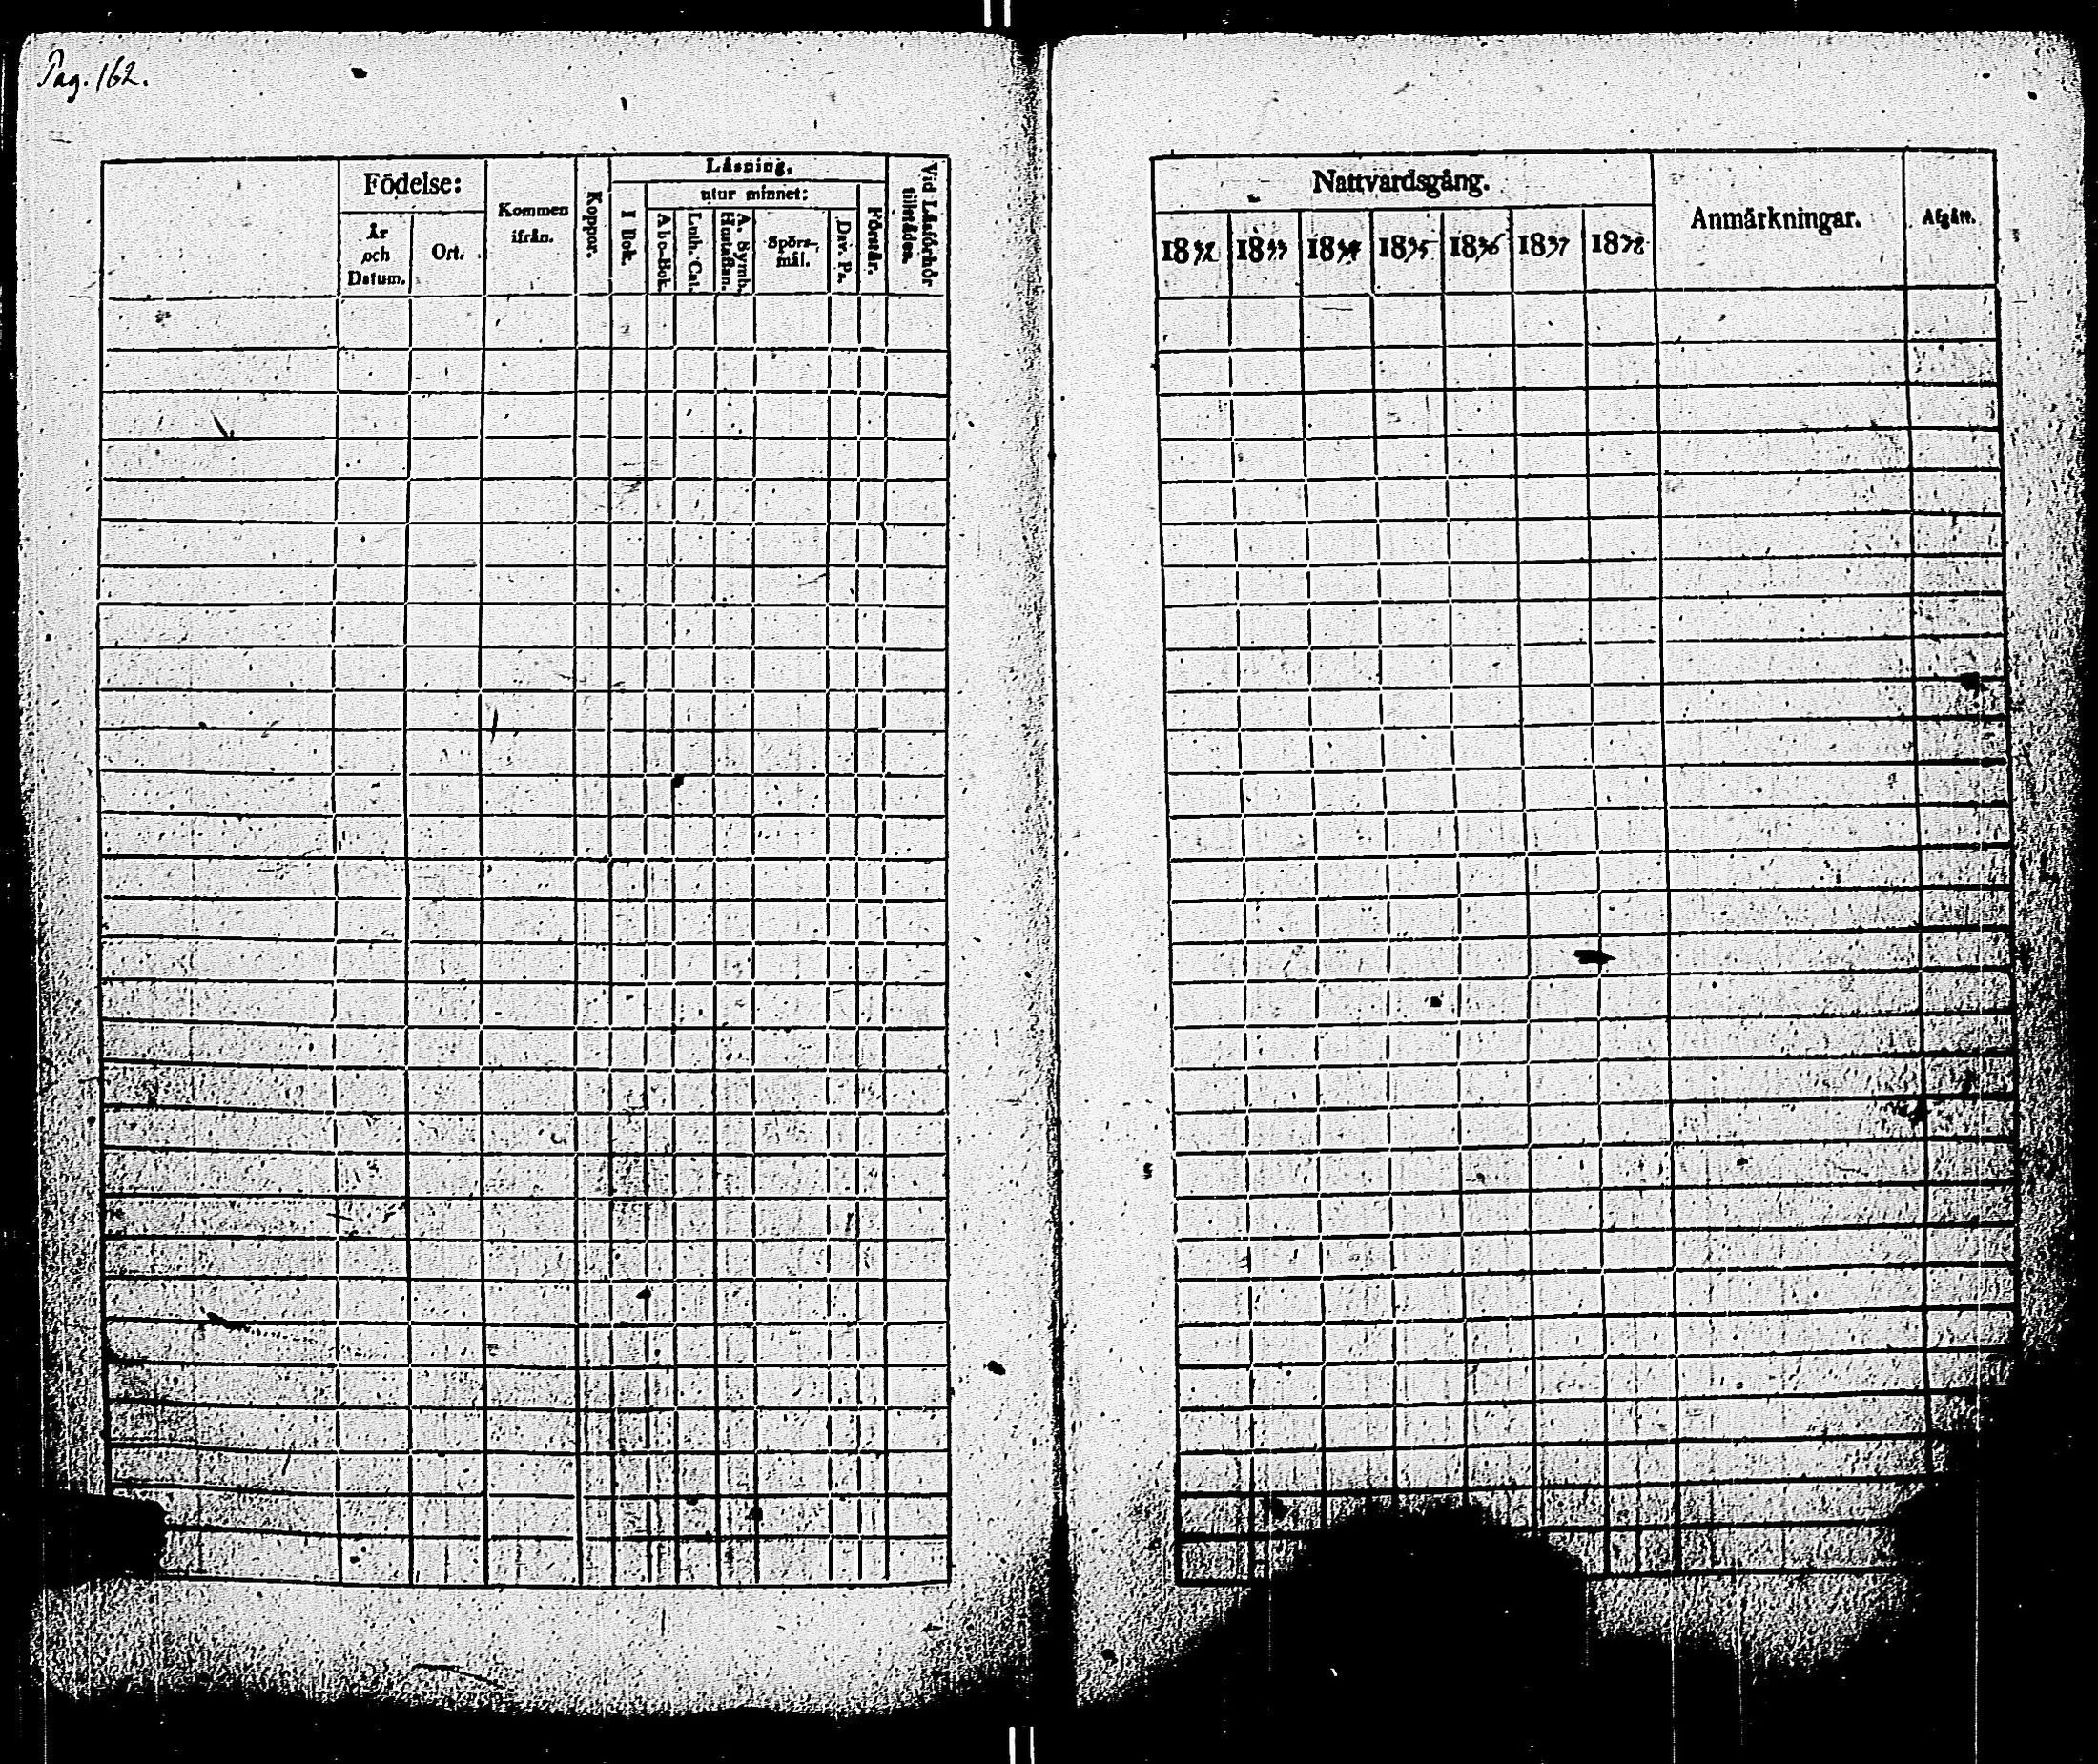 Pag. 162.
Födelse:
År och Datum.
Ort.
Kommen ifrån.
Koppor.
Låsning,
I Bok.
utur minnet:
Abc-Bok.
Luth. Cat.
A. Symb. Hustaflan.
Spörs-mål.
Dav. Ps.
Förstår.
Vid Läsförhör tillstädes.
Nattvardsgång.
1832 1833 1834 1835 1836 1837 1838
Anmärkningar.
Afgått.